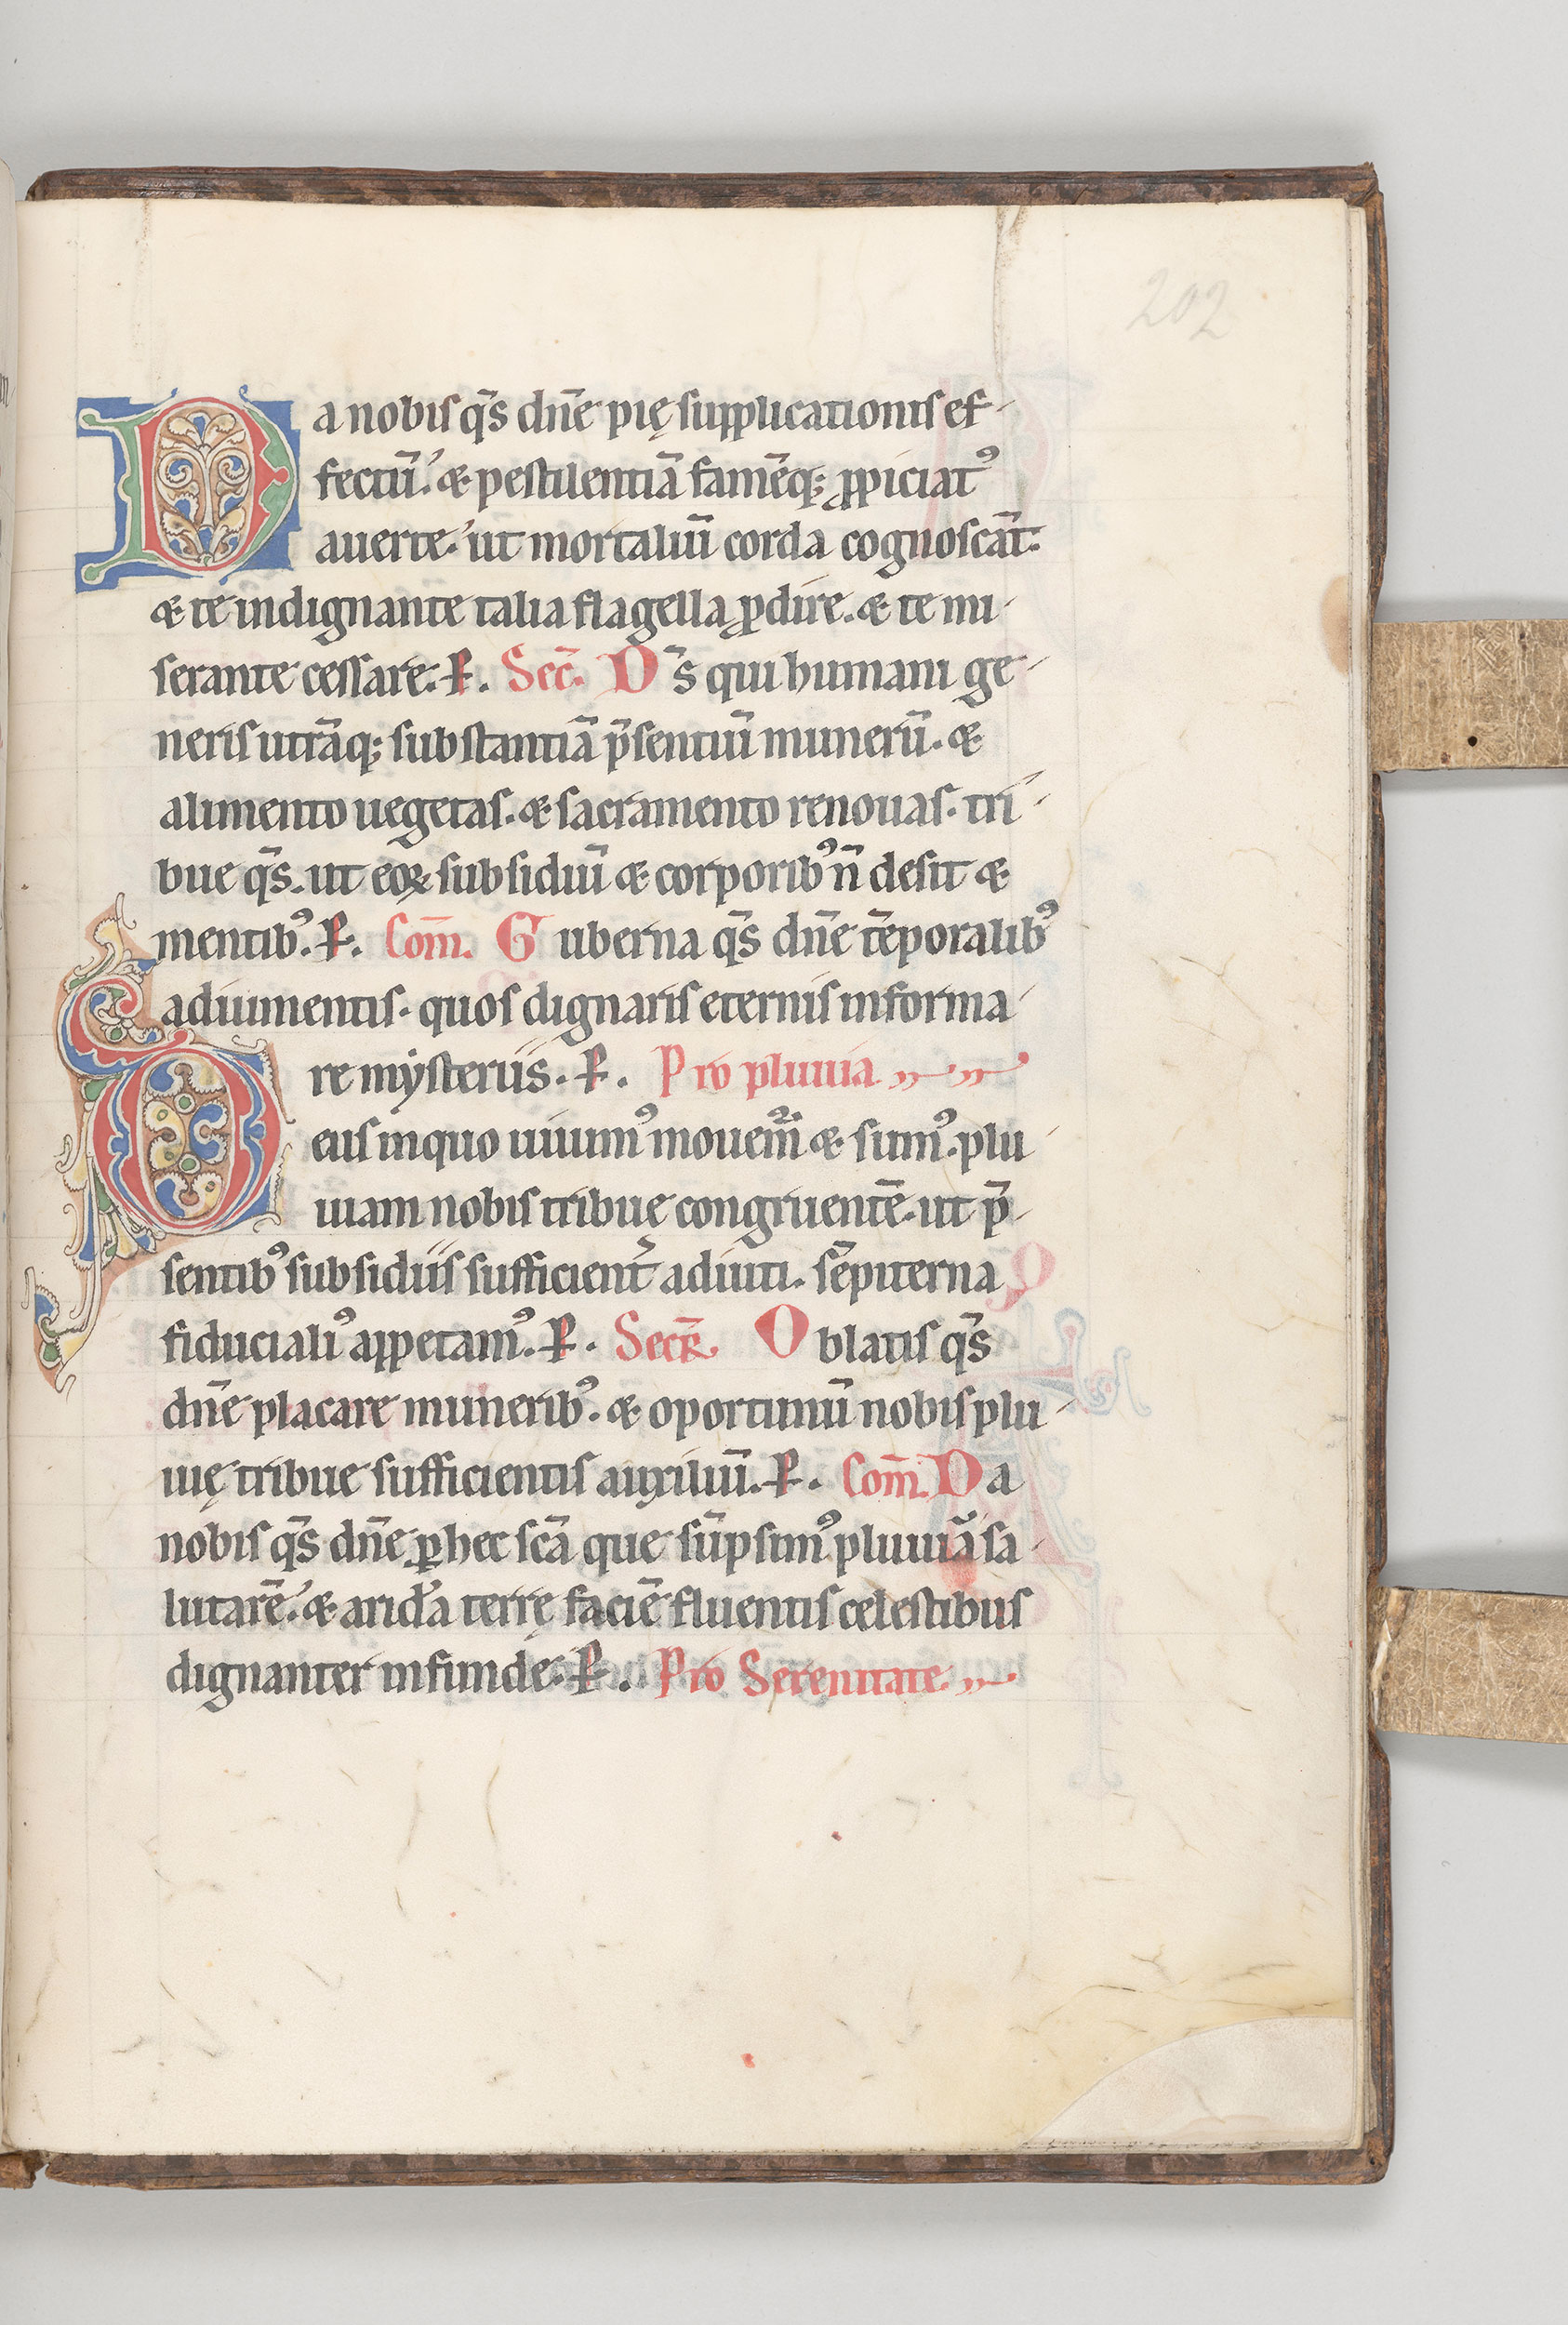 202
Da nobis q̄s dn̄e pię supplicationis ef-
fectū. & pestilentiā famēq; ꝓpiciatꝰ
auerte. ut mortaliū corda cognoscāt.
& te indignante talia flagella ꝓdire. & te mi-
serante cessare. P. Sec̄. Ds̄ qui humani ge-
neris utrāq; substantiā p̄sentiū munerū. &
alimento uegetas. & sacramento renouas. tri-
bue q̄s. ut eoꝝ subsidiū & corporibꝰ n̄ desit &
mentibꝰ. P. Com̄. Guberna q̄s dn̄e tēporalibꝰ
adiumentis. quos dignaris eternis informa-
re mẏsteriis. P. Pro pluuia
Deus in quo uiuimꝰ mouem̄ & sumꝰ. plu-
uiam nobis tribuę congruentē. ut p̄-
sentibꝰ subsidiis sufficient̄ adiuti. sēpiterna
fiducialiꝰ appetamꝰ. P. Secr̄. Oblatis q̄s
dn̄e placare muneribꝰ. & oportunū nobis plu-
uię tribue sufficientis auxiliū. P. Com̄. Da
nobis q̄s dn̄e ꝑ hec sc̄a que sūpsimꝰ pluuiā sa-
lutarē. & aridā terrę faciē fluentis celestibus
dignanter infunde. P. Pro Serenitate.